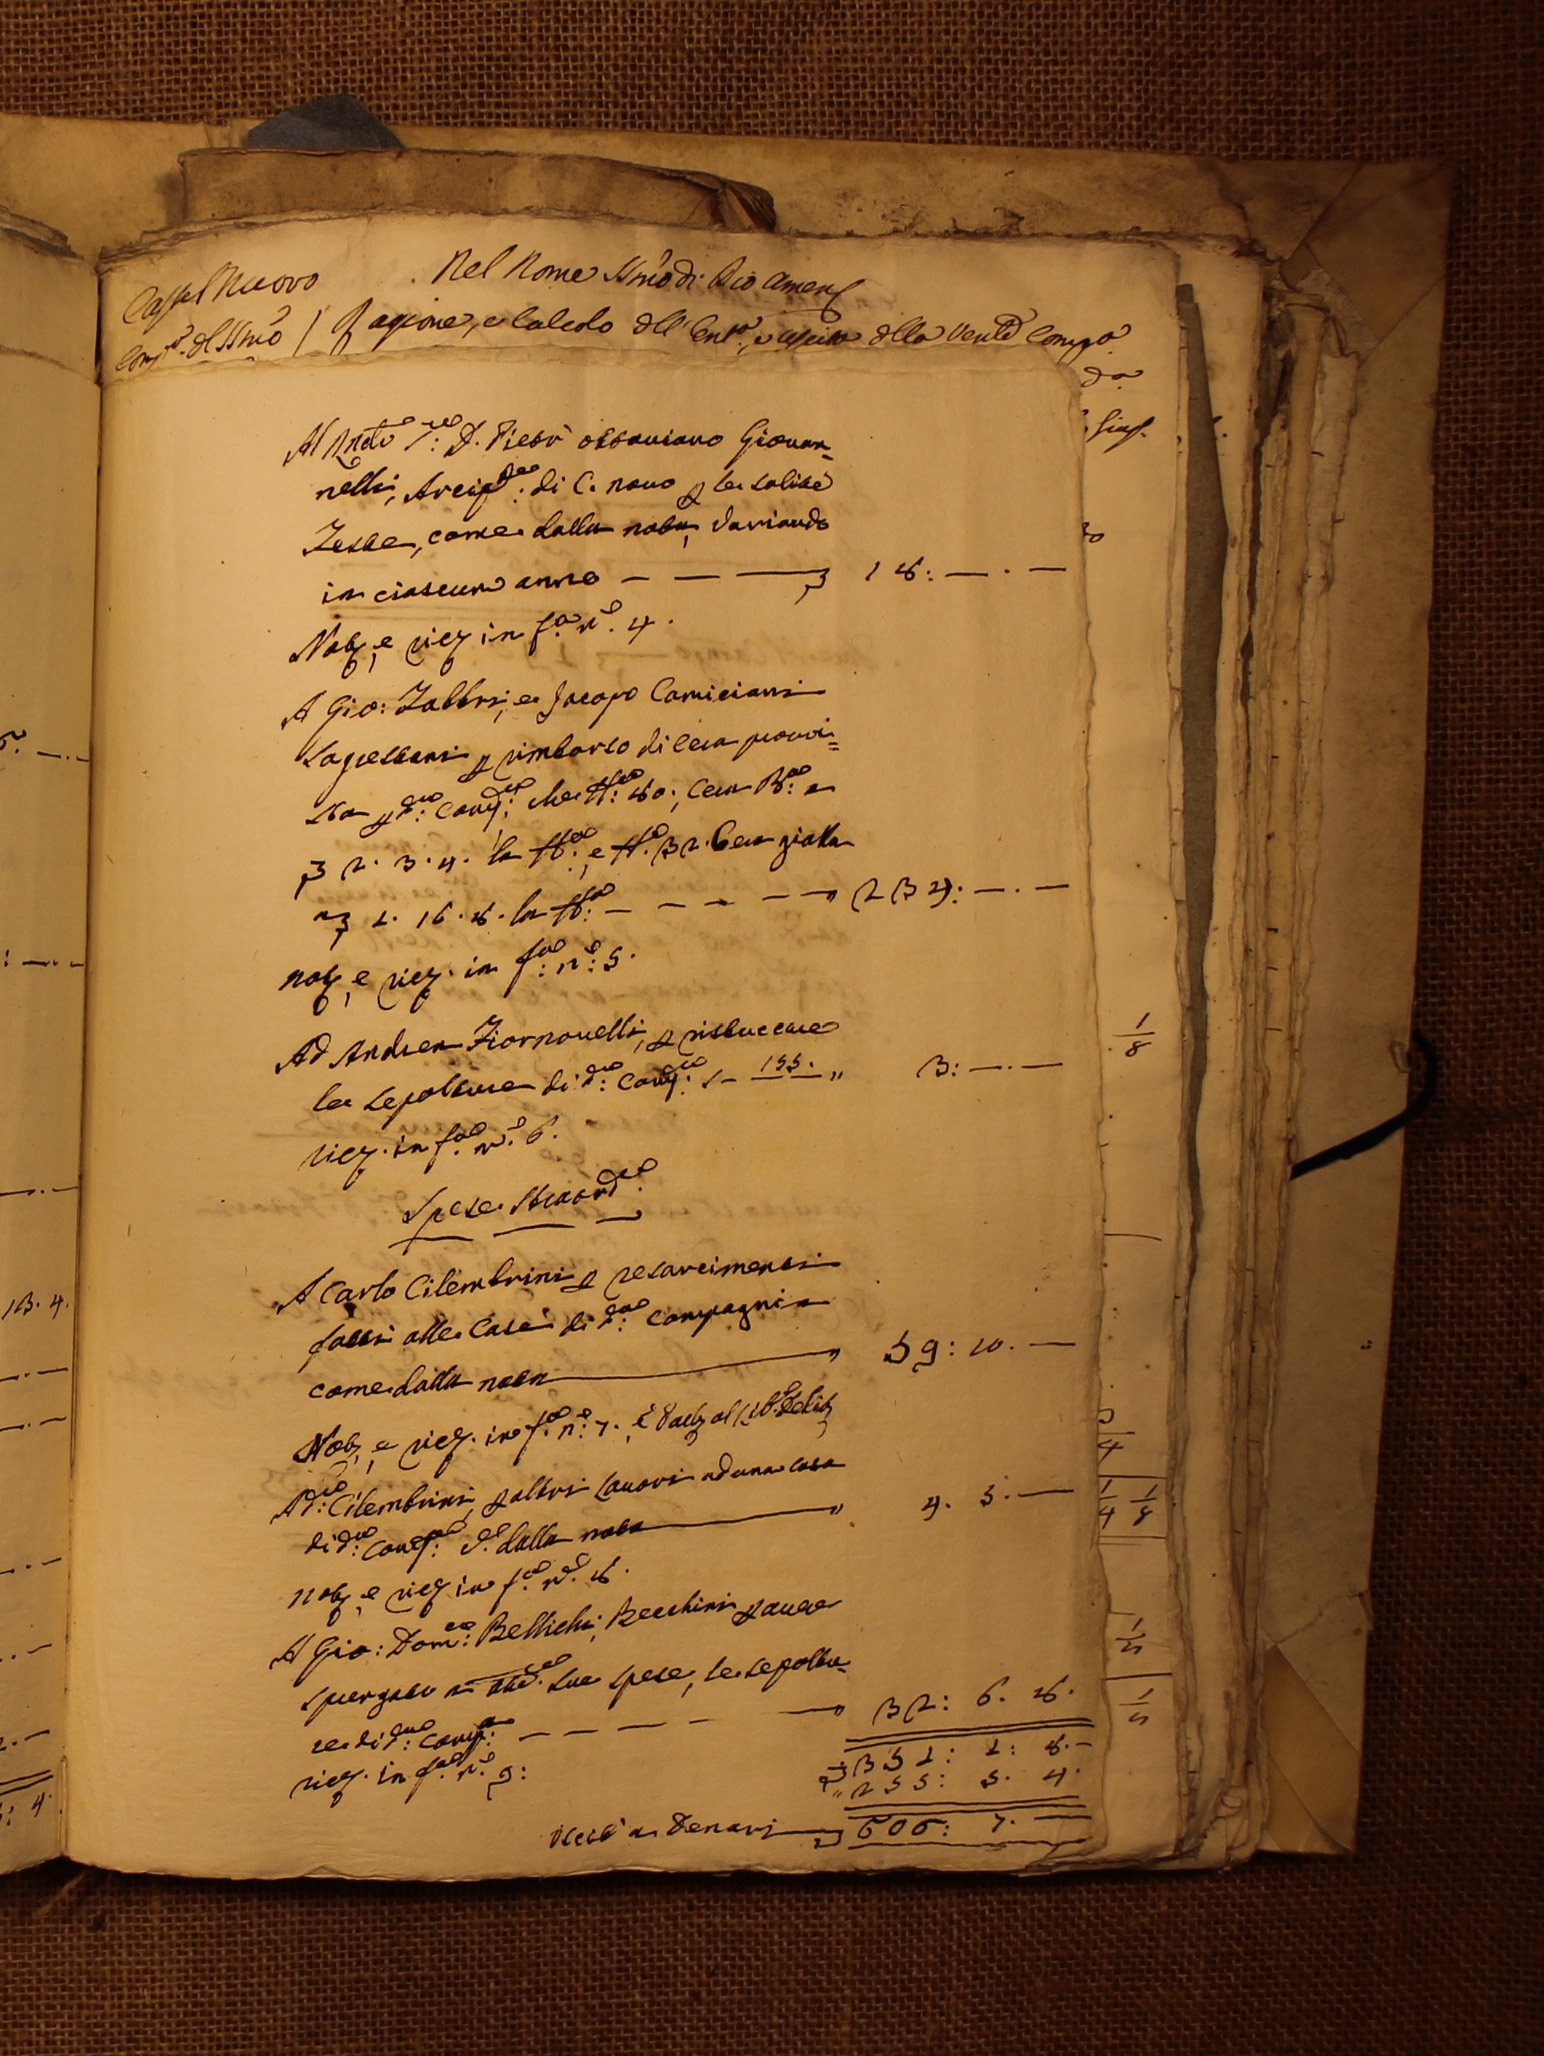 Castel Nuovo
Nel Nome SSmo di Dio Amen
Compa. del SSmo
Ragione, e Calcolo dell'Entra, e uscita della Vend Compa
da
Al Rndo Sre: D. Pietr' Ottaviano Giovan=
nelli, Arcipte: di C. novo p le solite
Feste, come dalla nota, variando
in ciascun anno — — — 18: — . —
Nota, e ricg in fa. n°. 4.
A Gio: Fabbri, e Jacopo Camiciani
Sagrestani p rimborso di Cera provvi=
sta p da: Comp: che tt: 80:, Cera Ba: a
2. 3. 4. la tt:, e tt: 32. Cera gialla
a 1. 16. 8. la tt: — — — — " 234: — . —
nota, e ricg. in fa: n°: 5.
Ad Andrea Fiornovelli, p ristuccare
le sepolture di da: Comp: " 3: — . —
ricg. in fa. n°. 6.
Spese Straord:
A Carlo Cilembrini p resarcimenti
fatti alle Case di da: Compagnia
come dalla nota — " 59: 10. —
Nota, e ricg. in fa. n°: 7.
A do: Cilembrini, p altri lavori ad una casa
di da: Comp: dalla nota — " 4. 5. —
nota, e ricg in fa. n°. 8.
A Gio: Domco: Bellichi, Becchini p aver
spurgato a sue spese, le sepoltu=
re di da: Comp: — — — — " 32: 6. 8.
ricg. in fa. n°. 9:
351: 1: 8. —
" 255: 5. 4.
Uscit' a Denari — 606: 7. —
13. 4.
1/8
1/4 1/8